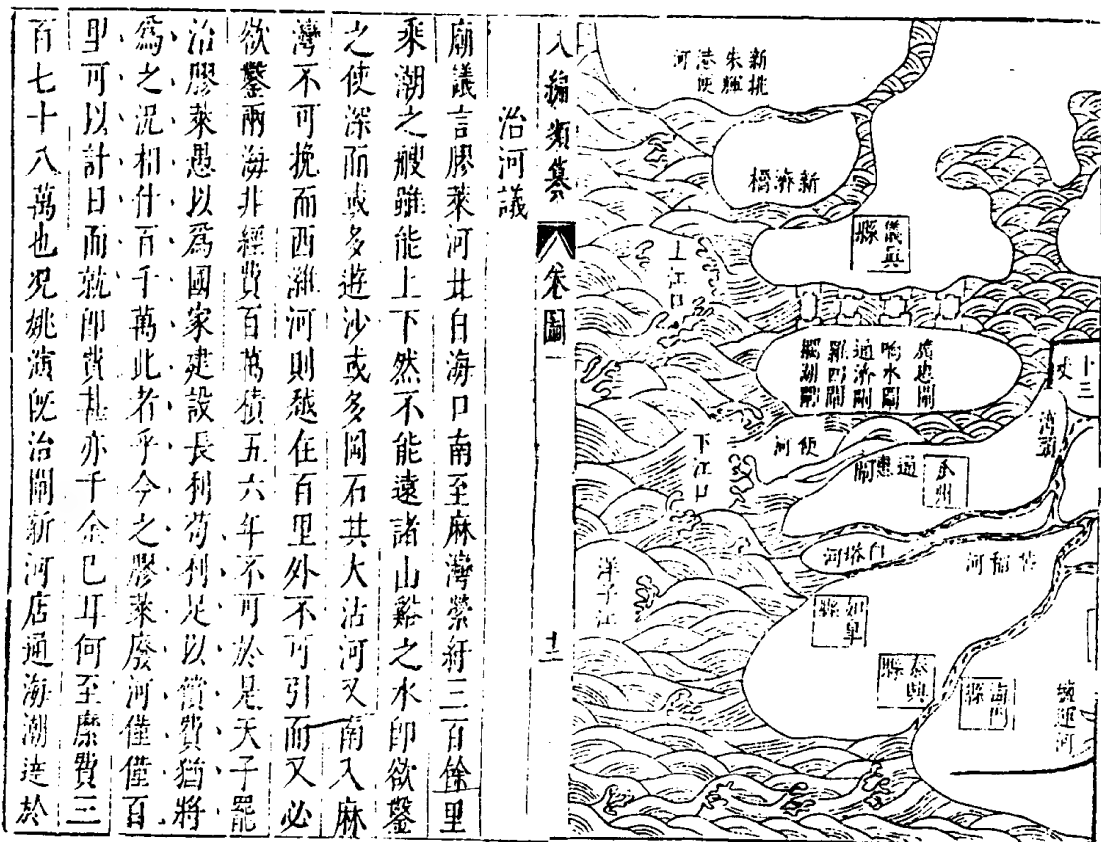 新挑
朱輝
港便
河
新濟橋
儀真
縣
上江口
廣惠閘
响水閘
通濟閘
羅泗閘
攔潮閘
十三
丈
灣頭
下江口
便
河
通惠閘
瓜州
白塔河
芒稲河
洋子江
如臯
縣
泰興
縣
海門
縣
塩運河
八編類纂
卷圖一
十二
治河議
廟議言膠萊河北自海口南至麻灣縈紆三百餘里
乘潮之艘雖能上下然不能遠諸山谿之水即欲鑿
之使深而或多遊沙或多岡石其大沽河又南入麻
灣不可挽而西濰河則越在百里外不可引而又必
欲鑿兩海非經費百萬積五六年不可於是天子罷
治膠萊愚以為國家建設長利苟利足以償費猶將
爲之況相什百千萬此者乎今之膠萊廢河僅僅百
里可以計日而就即費甚亦千金已耳何至糜費三
百七十八萬也況姚演既治閘新河店通海潮達於